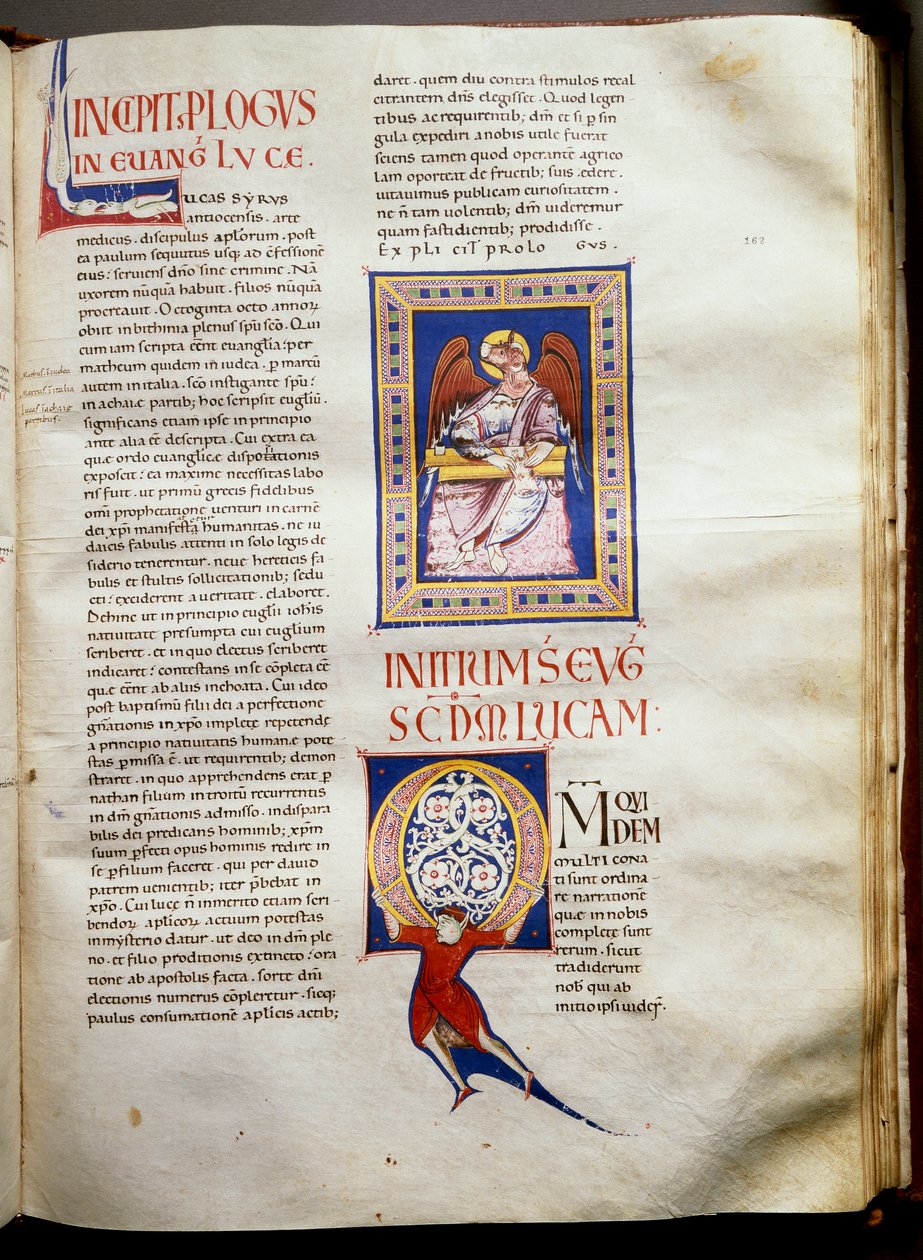 INCIPIT PLOGVS
IN EVANG̃ LVCE.
LUCAS SYRVS
antiocensis. arte
medicus. discipulus aplorum. post
ea paulum sequutus usq; ad c̃fessionẽ
eius: seruiens dño sine crimine. Nã
uxorem nũquã habuit. filios nũquã
procreauit. Octoginta octo annoꝝ
obiit in bithinia plenus spũ scõ. Qui
cum iam scripta eẽnt euanglia: per
matheum quidem in iudea. ꝑ marcũ
autem in italia. scõ instigante spũ:
in achaiæ partib; hoc scripsit euglĩũ.
significans etiam ipse in principio
ante alia eẽ descripta. Cui extra ea
quæ ordo euanglicæ dispositionis
exposcit: ea maxime necessitas labo
ris fuit. ut primũ grecis fidelibus
omĩ prophetatione uenturi in carnẽ
dei xp̃i manifesta humanitas. ne iu
daicis fabulis attenti in solo legis de
siderio tenerentur. neue hereticis fa
bulis et stultis sollicitationib; sedu
cti: exciderent a ueritate. elaboret.
Dehinc ut in principio euglĩi ioh̃is
natiuitate presumpta cui euglium
scriberet. et in quo electus scriberet
indicaret: contestans in se cõpleta eẽ
quæ eẽnt ab aliis inchoata. Cui ideo
post baptismũ filii dei a perfectione
gñationis in xp̃o implete repetendę
a principio natiuitatis humanæ pote
stas ꝑmissa ẽ. ut requirentib; demon
straret. in quo apprehendens erat ꝑ
nathan filium introitu recurrentis
in dm̃ gñationis admisso. indispara
bilis dei predicans hominib; xp̃m
suum ꝑfecti opus hominis redire in
se ꝑ filium faceret. qui per dauid
patrem uenientib; iter p̃bebat in
xp̃o. Cui lucę ñ inmerito etiam scri-
bendoꝝ aplicoꝝ actuum potestas
in mysterio datur. ut deo in dm̃ ple
no. et filio proditionis extincto: ora
tione ab apostolis facta. sorte dm̃i
electionis numerus cõpleretur. sicq;
paulus consumationẽ aplicis actib;
daret. quem diu contra stimulos recal
citrantem dñs elegisset. Quod legen-
tibus ac requirentib; dm̃ et si ꝑ sin
gula expediri a nobis utile fuerat
sciens tamen quod operantẽ agrico
lam oporteat de fructib; suis ædere.
uitauimus publicam curiositatem.
ne ñ tam uolentib; dm̃ uideremur
quam fastidientib; prodidisse.
EXPLICIT PROLOGVS.
162
INITIUM S̃ EVG̃
SC̃DM̃ LUCAM:
QM̃ QVI-
DEM
MULTI CONA
ti sunt ordina-
re narrationẽ
quæ in nobis
complete sunt
rerum. sicut
tradiderunt
nob̃ qui ab
initio ipsi uideꝝ.